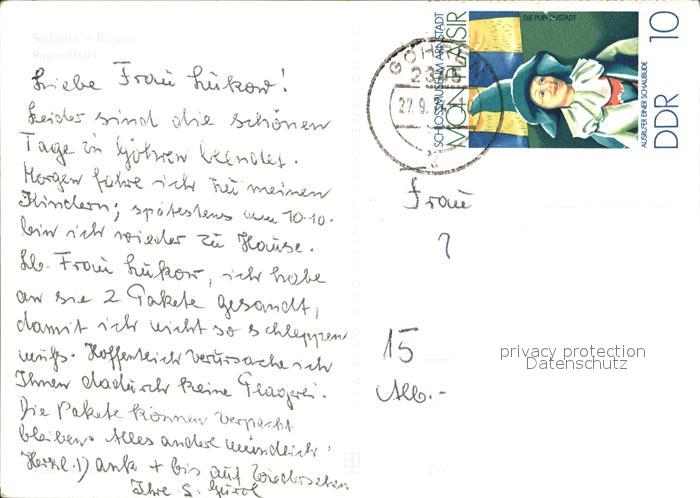 Saßnitz – Rügen
Rügen-Hotel
Liebe Frau Lukow!
Leider sind die schönen
Tage in Göhren beendet.
Morgen fahre ich zu meinen
Kindern; spätestens am 10.10.
bin ich wieder zu Hause.
Lb. Frau Lukow, ich habe
an Sie 2 Pakete gesandt,
damit ich nicht so schleppen
muß. Hoffentlich verursache ich
Ihnen dadurch keine Plagerei.
Die Pakete können verpackt
bleiben. Alles andere mündlich.
Herzl. Dank + bis auf Wiedersehen
Ihre S.
SCHLOSSMUSEUM ARNSTADT
MON PLAISIR
DIE PUPPENSTADT
AUSRUFER EINER SCHAUBUDE
DDR 10
27.9.
Frau
?
15
Alb.-
privacy protection
Datenschutz